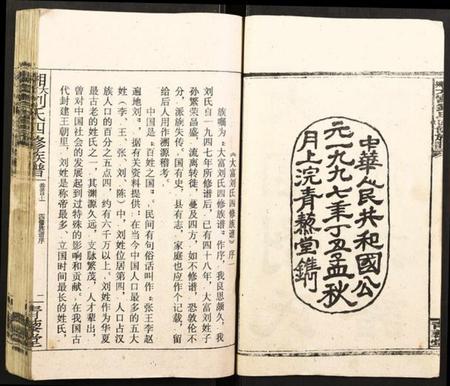 中華人民共和國公
元一九九七年丁丑孟秋
月上浣青藜堂鐫
《大富刘氏四修族谱》序一
族嘱为《大富刘氏四修族谱》作序，我良思颇久，我
刘氏自一九四七年修谱后，已有四十八年，大富刘姓子
孙繁荣昌盛，流离转徙，蔓及四方，如不修谱，恐敦伦不
分，派族失传。国有史，县有志，家庭也应作个记载，留
给后人用作溯源稽考。
中国是“百姓之国”。民间有句俗话叫作“张王李赵
遍地刘”。据有关资料提供：在当今中国人口最多的五大
姓（李、王、张、刘、陈）中，刘姓位居第四，人口占汉
族人口的百分之五点四，约有六千万以上。刘姓作为华夏
最古老的姓氏之一，其渊源久远，支脉繁茂，人才辈出，
曾对中国社会的发展起到过特殊的影响和贡献。在我国古
代封建王朝里，刘姓是称帝最多，立国时间最长的姓氏，
刘氏四修族谱
卷首上
四修族谱序
二
青藜堂